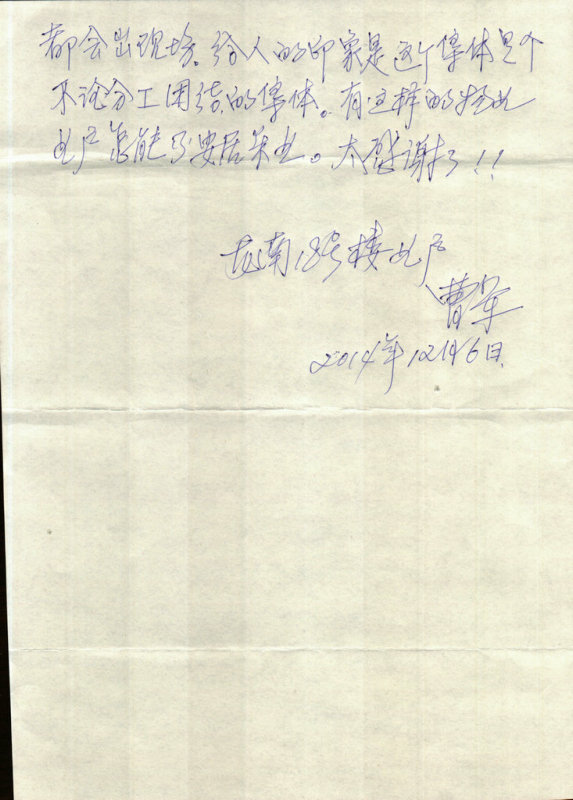 都会出现场，给人的印象是这个集体是个
不论分工团结的集体。有这样的物业
业户怎能不安居乐业。太感谢了！！
龙南18号楼业户
曹军
2014年12月6日